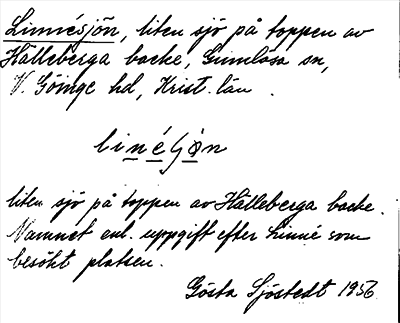 Linnésjön, liten sjö på toppen av
Hälleberga backe, Gumlösa sn,
V. Göinge hd, Krist. län.
linéʃön
liten sjö på toppen av Hälleberga backe.
Namnet enl. uppgift efter Linné som
besökt platsen.
Gösta Sjöstedt 1956.